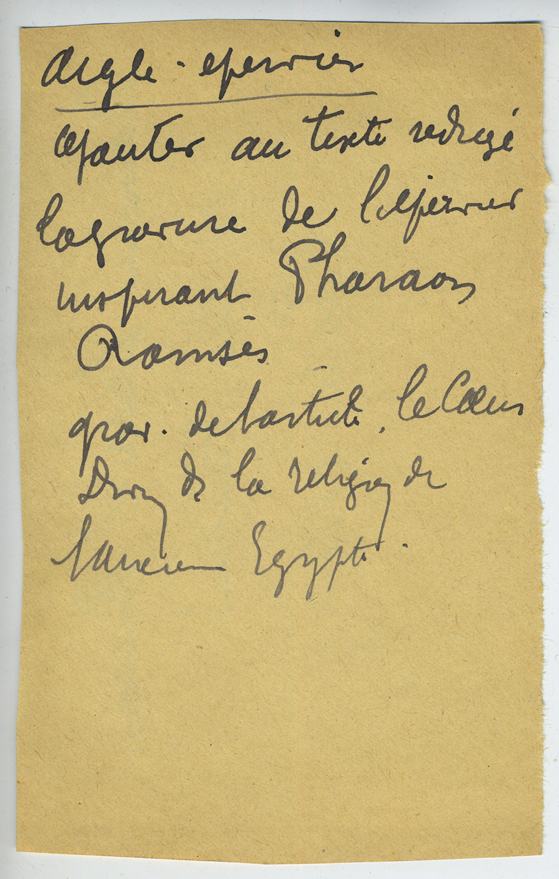 Aigle - epervier
ajouter au texte redigé
la gravure de l'epervier
inspirant Pharaon
Ramsès
grav. de l'article, le Cœur
Divin de la religion de
l'ancienne Egypte.